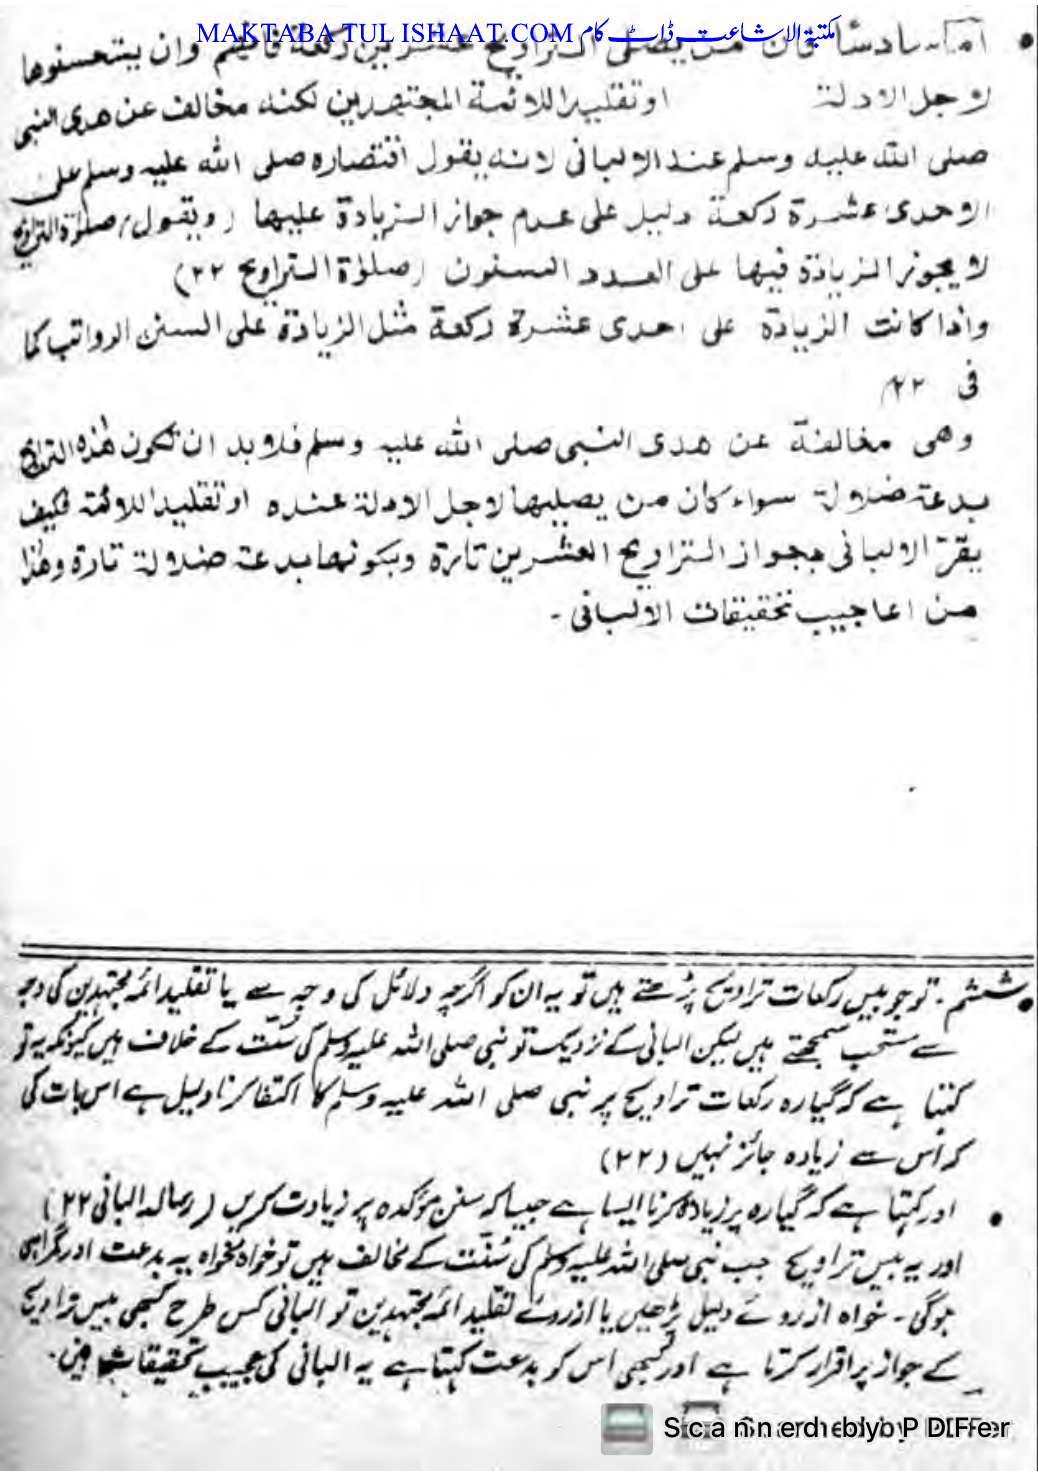 MAKTABA TUL ISHAAT.COM مکتبۃ الاشاعت ڈاٹ کام
اما سادسا فان من يصلى التراويح عشرين ركعة فانهم وان يستحسنوها
لاجل الادلة او تقليدا للائمة المجتهدين لكنه مخالف عن هدى النبى
صلى الله عليه وسلم عند الالبانى لانه يقول اقتصاره صلى الله عليه وسلم على
الاحدى عشرة ركعة دليل على عدم جواز الزيادة عليها (ويقول/ صلوٰة التراويح
لا يجوز الزيادة فيها على العدد المسنون (صلوٰة التراويح ۲۲)
واذا كانت الزيادة على احدى عشرة ركعة مثل الزيادة على السنن الرواتب كما
فى ۲۲
وهى مخالفة عن هدى النبى صلى الله عليه وسلم فلابد ان تكون هٰذه التراويح
بدعة ضلالة سواء كان من يصليها لاجل الادلة عنده او تقليدا للائمة فكيف
يقرّ الالبانى بجواز التراويح العشرين تارة وبكونها بدعة ضلالة تارة وهٰذا
من اعاجيب تحقيقات الالبانى ۔
ششم ۔ تو جو بیس رکعات تراویح پڑھتے ہیں تو یہ ان کو اگرچہ دلائل کی وجہ سے یا تقلید ائمہ مجتہدین کی وجہ
سے مستحب سمجھتے ہیں لیکن البانی کے نزدیک تو نبی صلی اللہ علیہ وسلم کی سنّت کے خلاف ہیں کیونکہ یہ تو
کہتا ہے کہ گیارہ رکعات تراویح پر نبی صلی اللہ علیہ وسلم کا اکتفا کرنا دلیل ہے اس بات کی
کہ اس سے زیادہ جائز نہیں (۲۲)
اور کہتا ہے کہ گیارہ پر زیادہ کرنا ایسا ہے جیسا کہ سنن مؤکدہ پر زیادت کریں (رسالہ البانی ۲۲)
اور یہ بیس تراویح جب نبی صلی اللہ علیہ وسلم کی سنّت کے مخالف ہیں تو خواہ مخواہ یہ بدعت اور گمراہی
ہوگی ۔ خواہ ازروئے دلیل پڑھیں یا ازروئے تقلید ائمہ مجتہدین تو البانی کس طرح کبھی بیس تراویح
کے جواز پر اقرار کرتا ہے اور کبھی اس کو بدعت کہتا ہے یہ البانی کی عجیب تحقیقات ہیں۔